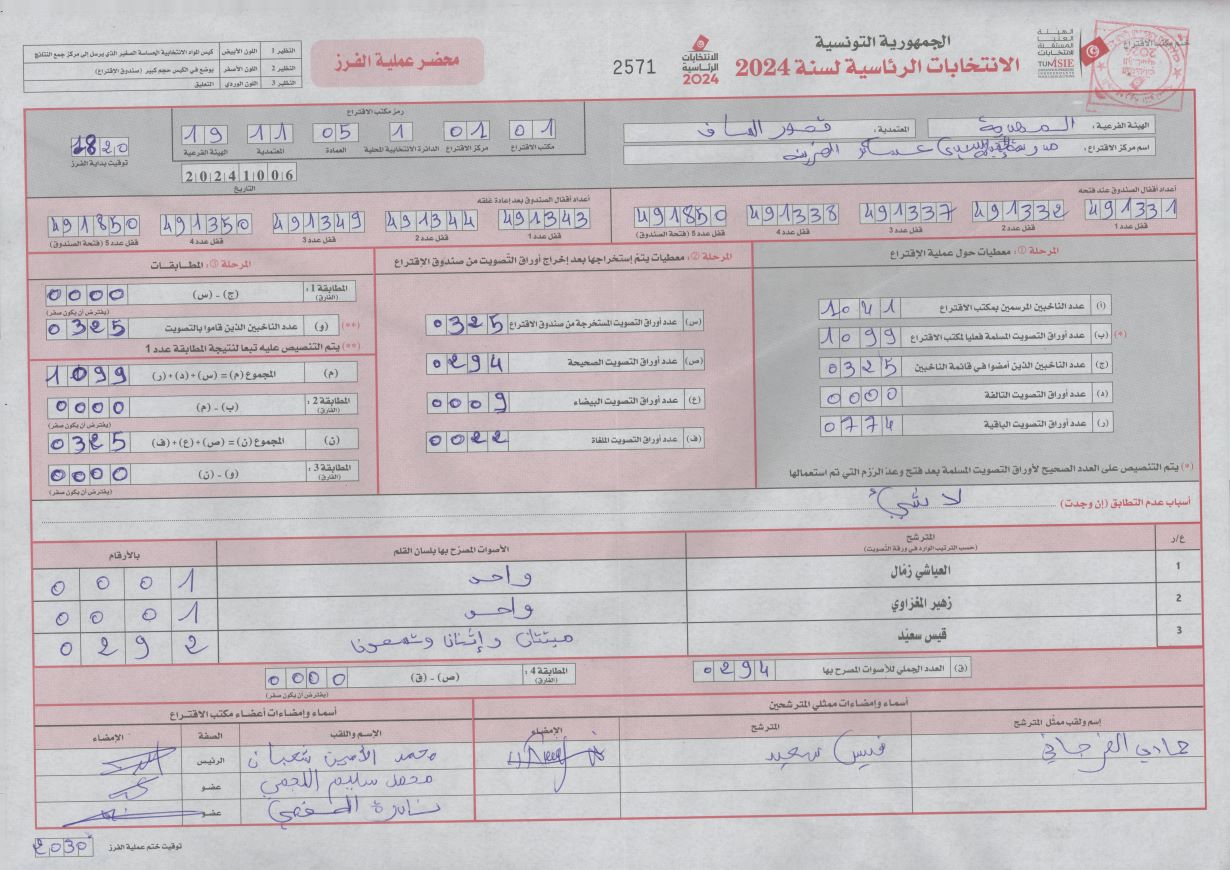 الجمهورية التونسية
الانتخابات الرئاسية لسنة 2024
2571
محضر عملية الفرز
ختم مكتب الاقتراع
الهيئة العليا المستقلة للانتخابات
TUNISIE
الانتخابات الرئاسية 2024
النظير 1 اللون الأبيض كيس المواد الانتخابية الحساسة الصغير الذي يرسل إلى مركز جمع النتائج
النظير 2 اللون الأصفر يوضع في الكيس حجم كبير (صندوق الإقتراع)
النظير 3 اللون الوردي التعليق
الهيئة الفرعية : المهدية
المعتمدية : قصور الساف
اسم مركز الاقتراع :
رمز مكتب الاقتراع
01 01 1 05 11 19
مكتب الاقتراع مركز الاقتراع الدائرة الانتخابية المحلية العمادة المعتمدية الهيئة الفرعية
20241006
التاريخ
1820
توقيت بداية الفرز
أعداد أقفال الصندوق عند فتحه
491331 491332 491337 491338 491850
قفل عدد 1 قفل عدد 2 قفل عدد 3 قفل عدد 4 قفل عدد 5 (فتحة الصندوق)
أعداد أقفال الصندوق بعد إعادة غلقه
491343 491344 491349 491350 491850
قفل عدد 1 قفل عدد 2 قفل عدد 3 قفل عدد 4 قفل عدد 5 (فتحة الصندوق)
المرحلة ①: معطيات حول عملية الإقتراع
(أ) عدد الناخبين المرسمين بمكتب الاقتراع 1041
(*) (ب) عدد أوراق التصويت المسلمة فعليا لمكتب الاقتراع 1099
(ج) عدد الناخبين الذين أمضوا في قائمة الناخبين 0325
(د) عدد أوراق التصويت التالفة 0000
(ر) عدد أوراق التصويت الباقية 0774
(*) يتم التنصيص على العدد الصحيح لأوراق التصويت المسلمة بعد فتح وعدّ الرّزم التي تم استعمالها
المرحلة ②: معطيات يتمّ إستخراجها بعد إخراج أوراق التّصويت من صندوق الإقتراع
(س) عدد أوراق التصويت المستخرجة من صندوق الاقتراع 0325
(ص) عدد أوراق التصويت الصحيحة 0294
(ع) عدد أوراق التصويت البيضاء 0009
(ف) عدد أوراق التصويت الملغاة 0022
المرحلة ③: المطابقات
المطابقة 1 : (الفارق) (ج) - (س) 0000
(يفترض أن يكون صفر)
(**) (و) عدد الناخبين الذين قاموا بالتصويت 0325
(**) يتم التنصيص عليه تبعا لنتيجة المطابقة عدد 1
(م) المجموع (م) = (س) + (د) + (ر) 1099
المطابقة 2 : (الفارق) (ب) - (م) 0000
(يفترض أن يكون صفر)
(ن) المجموع (ن) = (ص) + (ع) + (ف) 0325
المطابقة 3 : (الفارق) (و) - (ن) 0000
(يفترض أن يكون صفر)
أسباب عدم التطابق (إن وجدت) لا شيء
ع/ر المترشح الأصوات المصرّح بها بلسان القلم بالأرقام
(حسب الترتيب الوارد في ورقة التصويت)
1 العياشي زمّال واحد 0001
2 زهير المغزاوي واحد 0001
3 قيس سعيّد مئتان وإثنانا وتسعونا 0292
(ق) العدد الجملي للأصوات المصرح بها 0294
المطابقة 4 : (الفارق) (ص) - (ق) 0000
(يفترض أن يكون صفر)
أسماء وإمضاءات ممثلي المترشحين
إسم ولقب ممثّل المترشح المترشح الإمضاء
هادي الفرجاني قيس سعيد
أسماء وإمضاءات أعضاء مكتب الاقتراع
الإسم واللقب الصفة الإمضاء
محمد الأمين شعبان الرئيس
محمد سليم اللجمي عضو
عضو
توقيت ختم عملية الفرز 2030